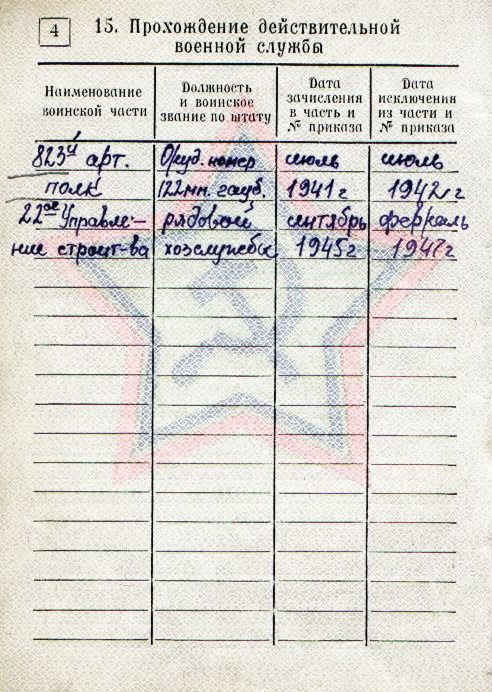 4
15. Прохождение действительной
военной службы
Наименование воинской части
Должность и воинское звание по штату
Дата зачисления в часть и № приказа
Дата исключения из части и № приказа
823й арт. Оруд. номер июль июль
полк 122мм. гауб. 1941 г 1942 г
22ое Управле- рядовой сентябрь февраль
ние строит-ва хозслужбы 1945 г 1947 г